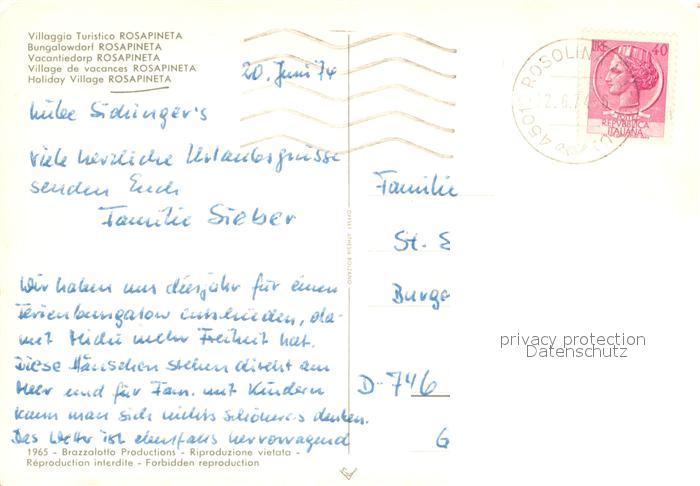 Villaggio Turistico ROSAPINETA
Bungalowdorf ROSAPINETA
Vacantiedorp ROSAPINETA
Village de vacances ROSAPINETA
Holiday Village ROSAPINETA
20. Juni 74
LIRE 40
REPVBBLICA
ITALIANA
viele herzliche Urlaubsgrüsse
senden Euch
Familie Sieber
Wir haben uns diesjahr für einen
Ferienbungalow entschieden, da-
mit Heidi mehr Freiheit hat.
Diese Häuschen stehen direkt am
Meer und für Fam. mit Kindern
kann man sich nichts schöneres denken.
Das Wetter ist ebenfalls hervorragend
Familie
St.
Burge
D-746
G
privacy protection
Datenschutz
1965 - Brazzolotto Productions - Riproduzione vietata -
Réproduction interdite - Forbidden reproduction